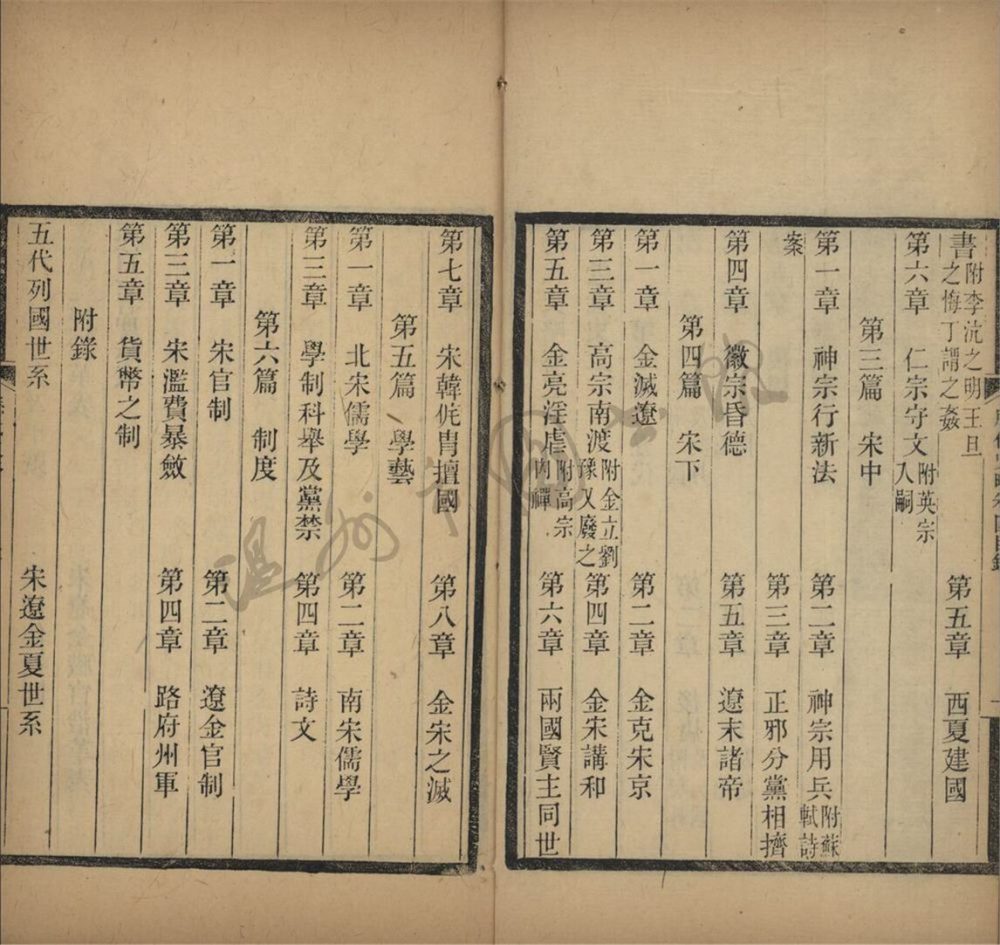 書附李沆之明王旦之悔丁謂之姦　第五章　西夏建國
第六章　仁宗守文附英宗入嗣
第三篇　宋中
第一章　神宗行新法　第二章　神宗用兵附蘇軾詩
案　第三章　正邪分黨相擠
第四章　徽宗昏德　第五章　遼末諸帝
第四篇　宋下
第一章　金滅遼　第二章　金克宋京
第三章　高宗南渡附金立劉豫又廢之　第四章　金宋講和
第五章　金亮淫虐附高宗內禪　第六章　兩國賢主同世
第七章　宋韓侂冑擅國　第八章　金宋之滅
第五篇　學藝
第一章　北宋儒學　第二章　南宋儒學
第三章　學制科舉及黨禁　第四章　詩文
第六篇　制度
第一章　宋官制　第二章　遼金官制
第三章　宋濫費暴斂　第四章　路府州軍
第五章　貨幣之制
附錄
五代列國世系　宋遼金夏世系